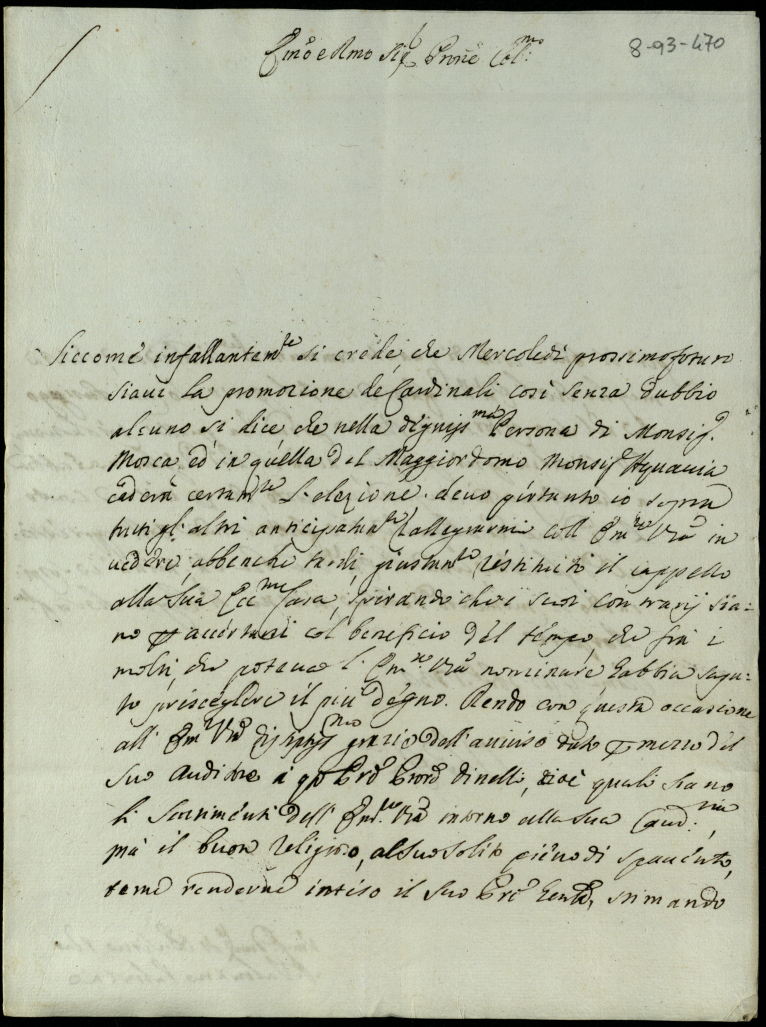 8-93-470
Em̃o e Rmo Sig.r Prñe Col.mo
Siccome infallantem.te si crede, che Mercoledì prossimo futuro
siavi la promozione de Cardinali così senza dubbio
alcuno si dice che nella digniss.ma Persona di Monsig.r
Mosca ed in quella del Maggiordomo Monsig.r Aquaviva
caderà certam.te l'elezione. devo pertanto io sopra
tutti gl'altri anticipatam.te rallegrarmi coll' Em.za Vrã in
vedere, abbenche tardi giustam.te restituito il cappello
alla Sua Ecc.ma Casa, sperando che i suoi contrarij sia-
no per accertarsi col beneficio del tempo, che frà i
molti, che poteva l'Em.za Vrã nominare habbia sapu-
to prescegliere il più degno. Rendo con questa occasione
all' Em.za Vrã grazie dell'avviso dato per mezzo del
Suo Auditore a q.o Prẽ dinelli, cioè quali siano
li sentimenti dell' Em.za Vrã intorno alla sua
mà il buon religioso, al suo solito pieno di spavento,
teme renderne inteso il suo Prẽ stimando